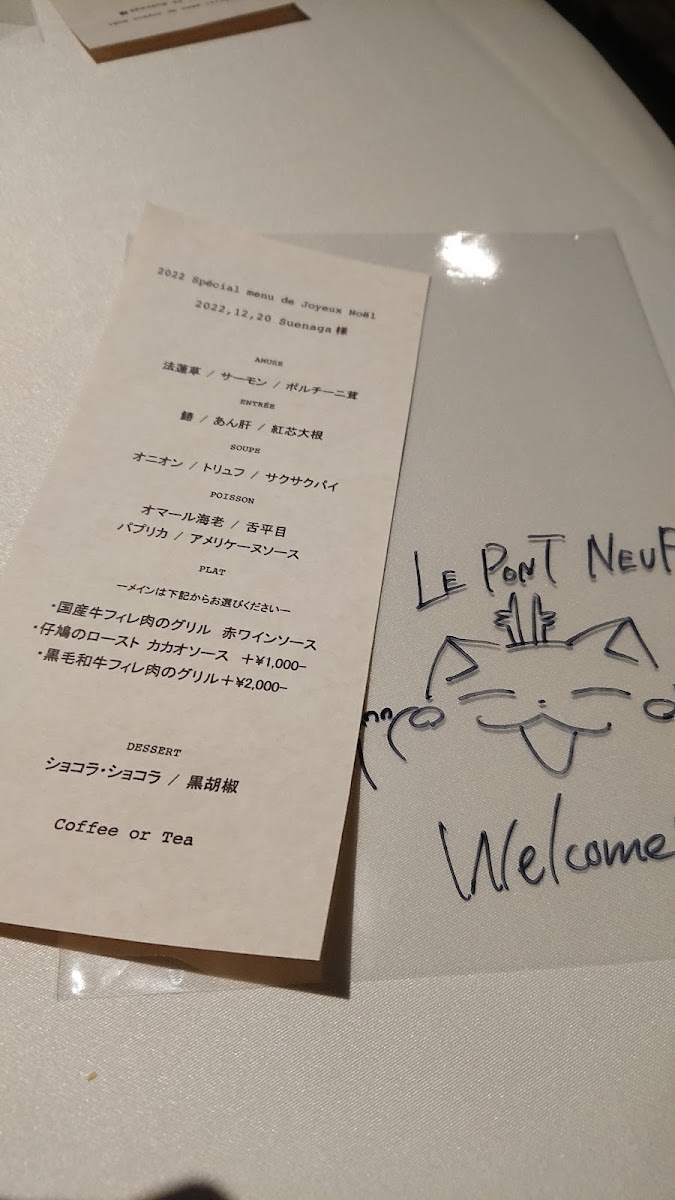 2022 Spécial menu de Joyeux Noël
2022,12,20 Suenaga 様
AMUSE
法蓮草 / サーモン / ポルチーニ茸
ENTRÉE
鰆 / あん肝 / 紅芯大根
SOUPE
オニオン / トリュフ / サクサクパイ
POISSON
オマール海老 / 舌平目
パプリカ / アメリケーヌソース
PLAT
ーメインは下記からお選びくださいー
・国産牛フィレ肉のグリル 赤ワインソース
・仔鳩のロースト カカオソース +¥1,000-
・黒毛和牛フィレ肉のグリル+¥2,000-
DESSERT
ショコラ・ショコラ / 黒胡椒
Coffee or Tea
LE PONT NEUF
Welcome